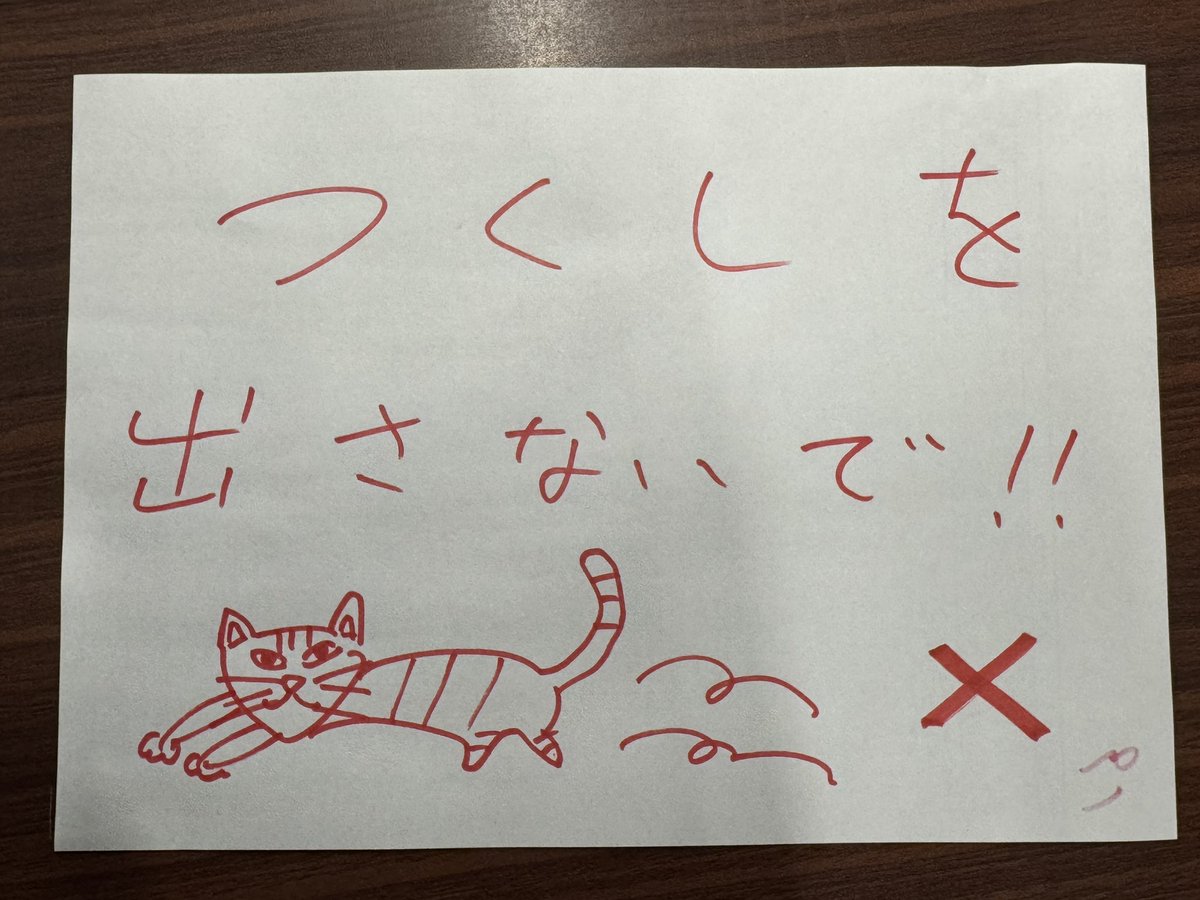 つくしを
出さないで!!